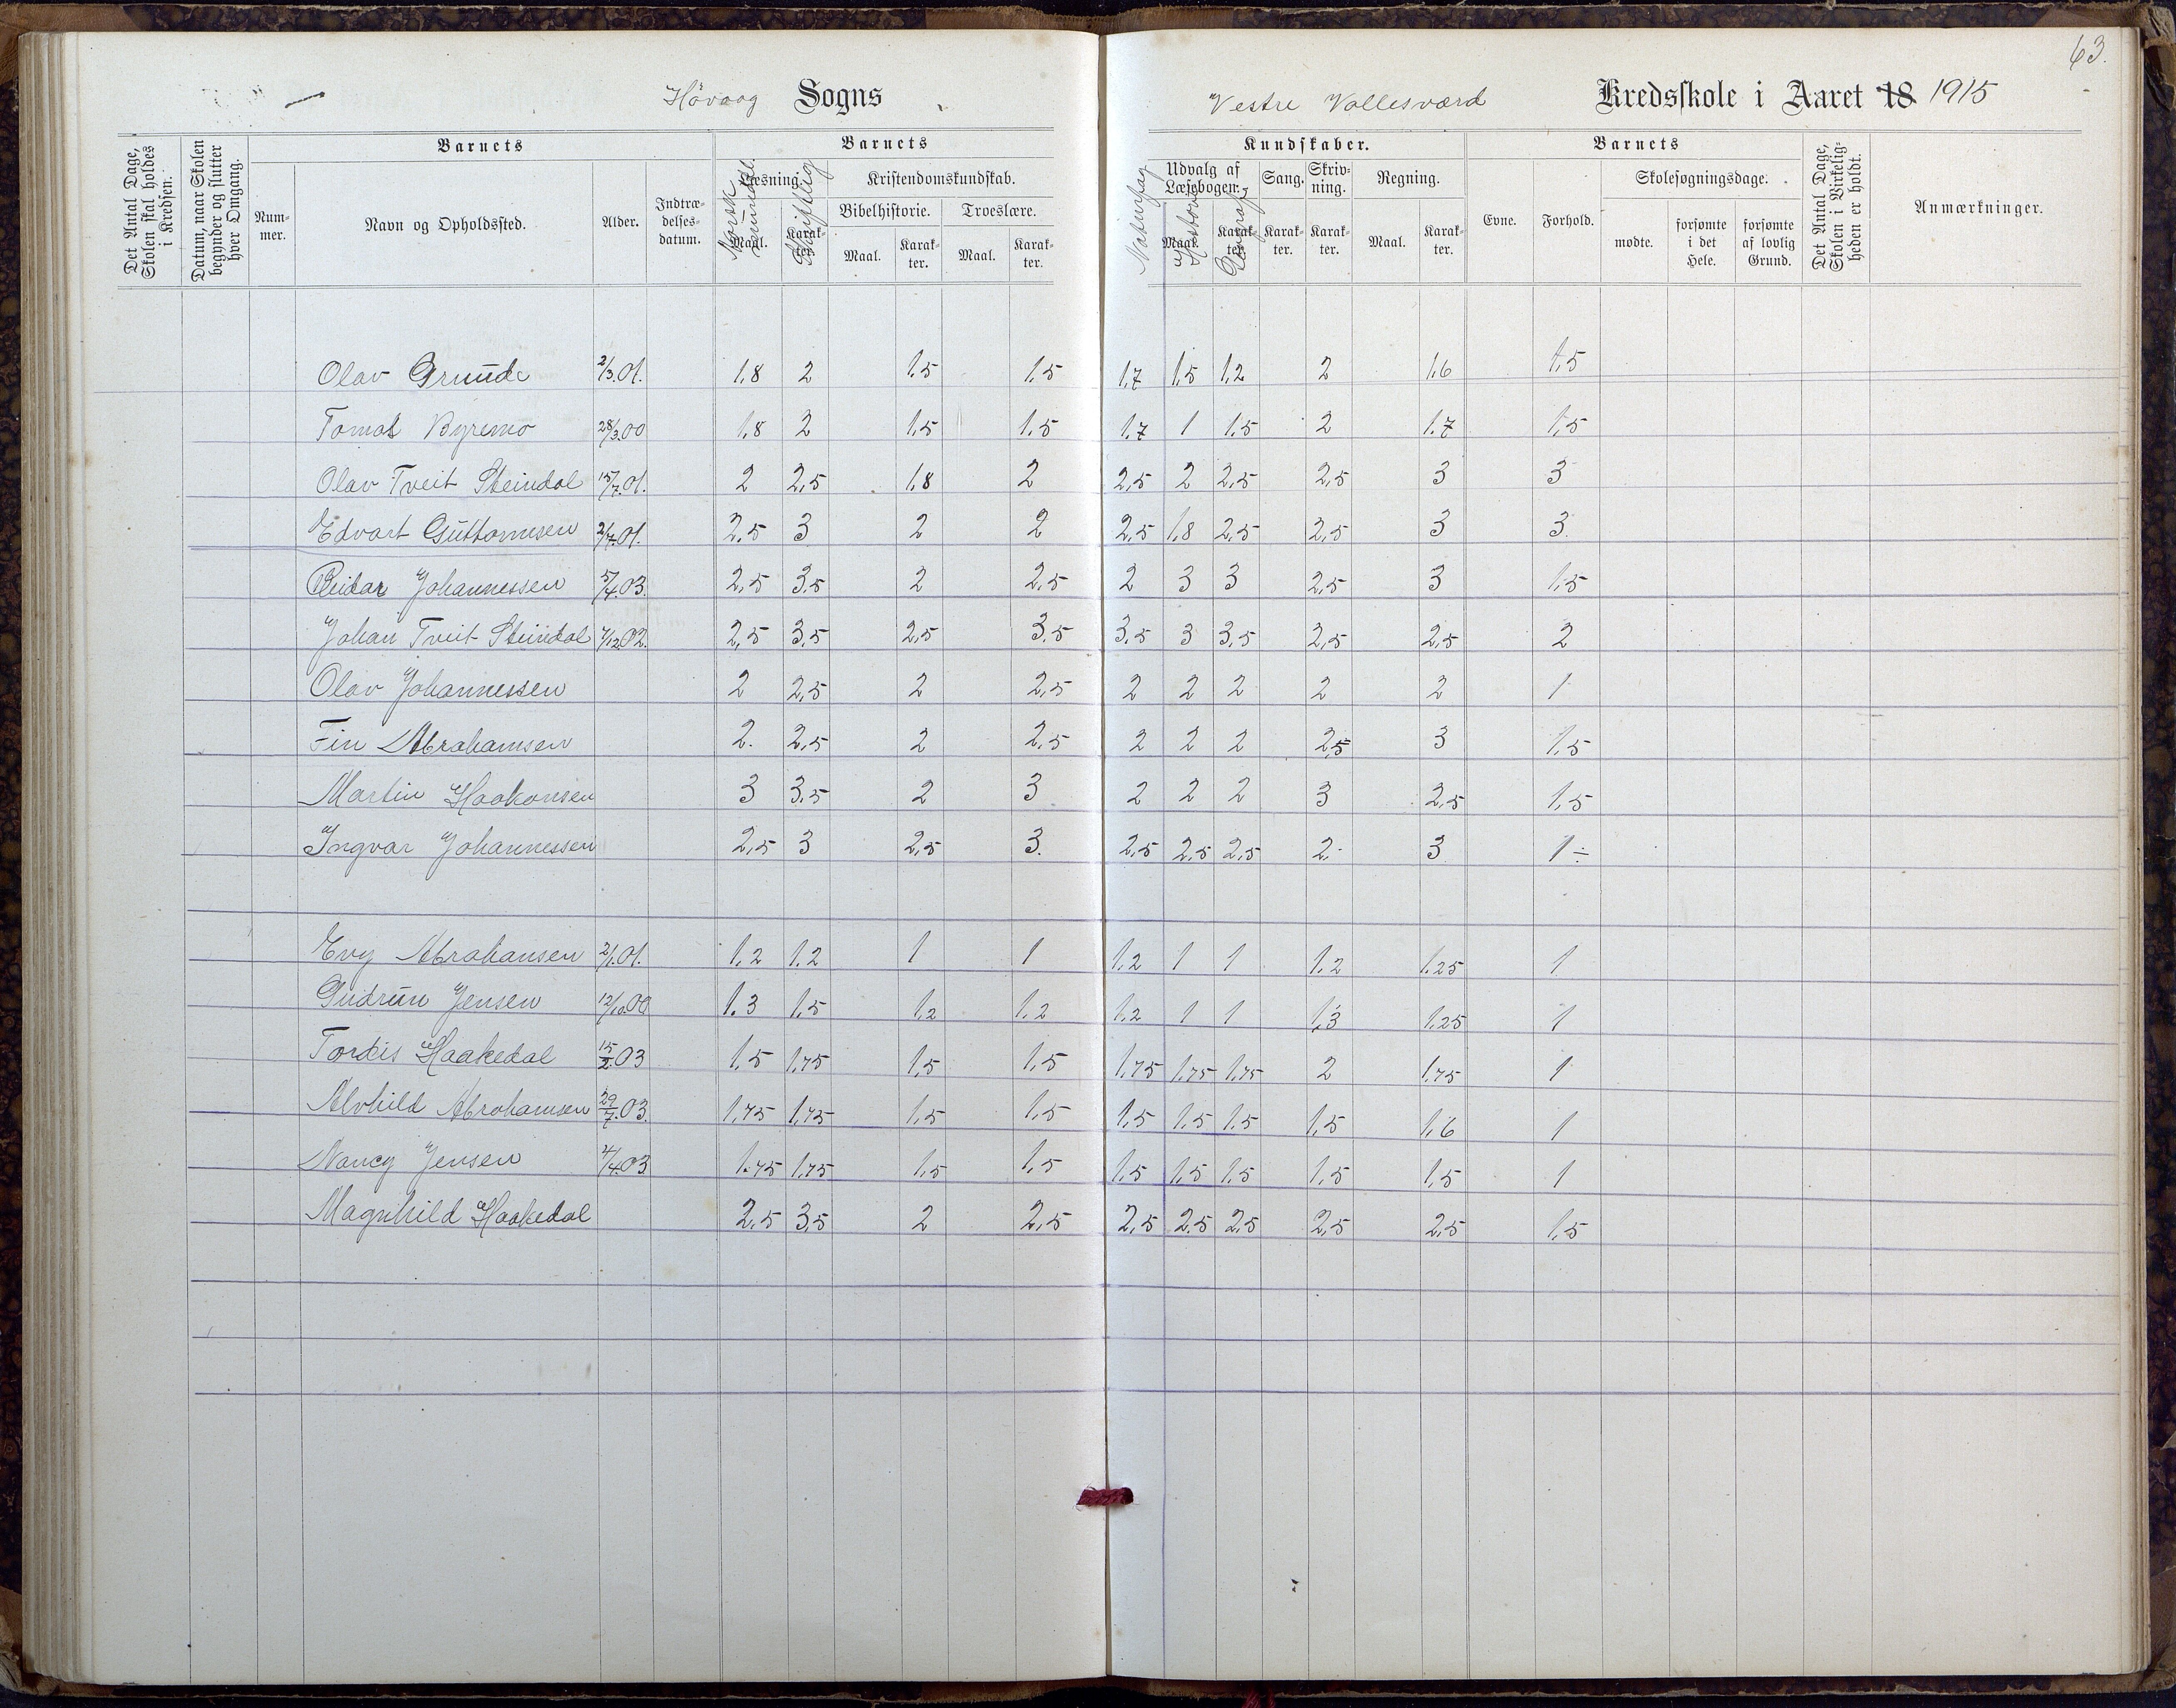 63.
Hövaag Sogns
Vestre Vallesværd Kredsskole i Aaret 18 1915
Det Antal Dage, Skolen skal holdes i Kredsen.
Datum, naar Skolen begynder og slutter hver Omgang.
Barnets
Nummer.
Navn og Opholdssted.
Alder.
Indtrædelsesdatum.
Barnets
Læsning.
Maal.
Karakter.
Norsk mundtl.
Skriftlig
Kristendomskundskab.
Bibelhistorie.
Maal.
Karakter.
Troeslære.
Maal.
Karakter.
Kundskaber.
Naturfag
Udvalg af Læsebogen.
Maal.
Karakter.
Historie
Geografi
Sang.
Karakter.
Skrivning.
Karakter.
Regning.
Maal.
Karakter.
Barnets
Evne.
Forhold.
Skolesøgningsdage.
mødte.
forsømte i det Hele.
forsømte af lovlig Grund.
Det Antal Dage, Skolen i Virkeligheden er holdt.
Anmærkninger.
Olav Grunde 2/3.01. 1,8 2 1.5 1.5 1,7 1,5 1,2 2 1.6 1,5
Tomas Byremo 28/3.00 1,8 2 1.5 1.5 1.7 1 1.5 2 1.7 1,5
Olav Tveit Steindal 15/7.01. 2 2,5 1,8 2 2,5 2 2,5 2,5 3 3
Edvart Guttormsen 2/7.01. 2,5 3 2 2 2,5 1,8 2,5 2,5 3 3.
Reidar Johannessen 5/4.03. 2,5 3.5 2 2,5 2 3 3 2,5 3 1.5
Johan Tveit Steindal 7/12.02. 2,5 3,5 2,5 3.5 3.5 3 3,5 2,5 2,5 2
Olav Johannessen 2 2,5 2 2,5 2 2 2 2 2 1
Fin Abrahamsen 2. 2,5 2 2,5 2 2 2 2,5 3 1,5
Martin Haakonsen 3 3.5 2 3 2 2 2 3 2,5 1,5
Ingvar Johannessen 2,5 3 2,5 3. 2,5 2,5 2,5 2. 3 1 ÷
Evy Abrahansen 2/1.01. 1.2 1.2 1 1 1.2 1 1 1,2 1.25 1
Gudrun Jensen 12/10.00 1.3 1,5 1,2 1.2 1.2 1 1 1,3 1.25 1
Tordis Haakedal 15/2.03 1,5 1,75 1,5 1,5 1.75 1.75 1,75 2 1.75 1
Alvhild Abrahamsen 29/7.03. 1,75 1,75 1,5 1,5 1,5 1,5 1.5 1,5 1,6 1
Nancy Jensen 4/4.03 1.75 1,75 1,5 1,5 1,5 1,5 1,5 1,5 1,5 1
Magnhild Haakedal 2,5 3,5 2 2,5 2,5 2.5 2,5 2,5 2,5 1,5